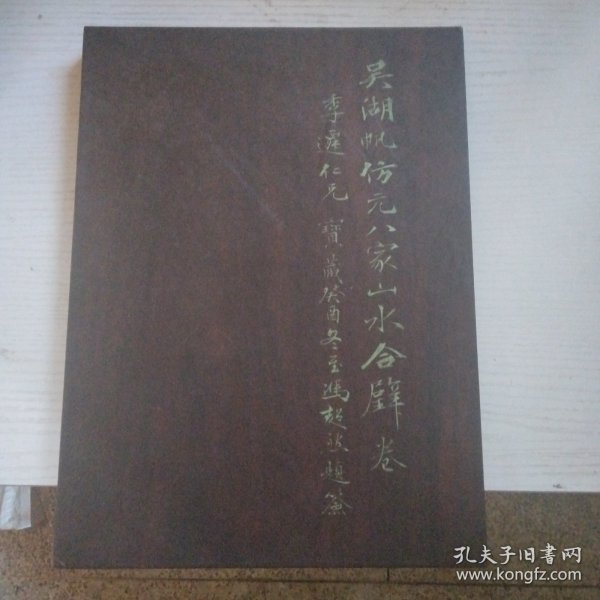 吴湖帆仿元八家山水合璧卷
季遲仁兄寶藏癸酉冬至馮超然題簽
孔夫子旧书网
www.kongfz.com